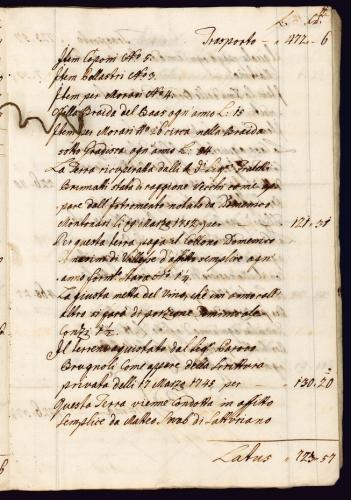 L. ß.
Trasporto - 472.. 6
Item Caponi N.º 5:
Item Pollastri N.º 3.
Item per Morari N.º 4.
Nella Braida del Baas ogn'anno L: 15
Item per Morari N.º 26 circa nella Braida
sotto Gradisca ogn'anno L: 24
La Terra ricuperata dalli d.i Sig.ri Fratelli
Brumati stati di raggione Vecchi come ap=
pare dall'Istromento notat.o da Domenico
Montenari li 19 Marzo 1742 per 121.. 31
Per questa terra paga il Colono Domenico
di Villesse d'affitto semplice ogn'
anno Form.to Stara N.º 1 4
La giusta metta del Vino, che un anno coll'
altro si garà di porzione Dominicale
Conzi 1 ½
Il terreno aquistato dal Sig.r Barone
Brugnoli Come appare della Scrittura
privata delli 17 Marzo 1745 per 130.. 20
Questa Terra vienne Condotta in affitto
semplice da Matteo
Latus 723.. 57